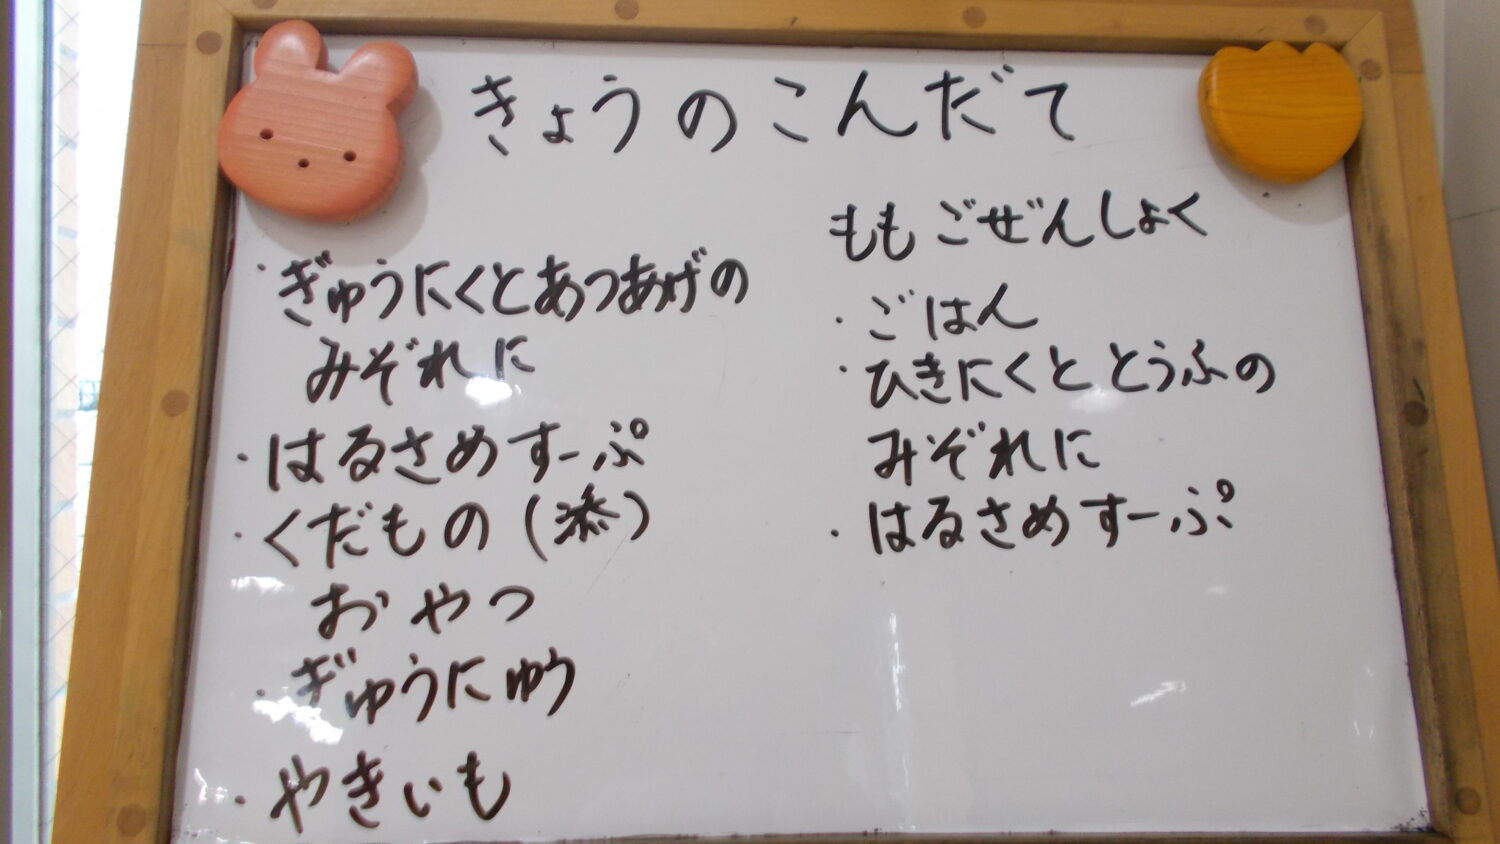 きょうのこんだて
・ぎゅうにくとあつあげの
みぞれに
・はるさめすーぷ
・くだもの(添)
おやつ
・ぎゅうにゅう
・やきいも
ももごぜんしょく
・ごはん
・ひきにくととうふの
みぞれに
・はるさめすーぷ